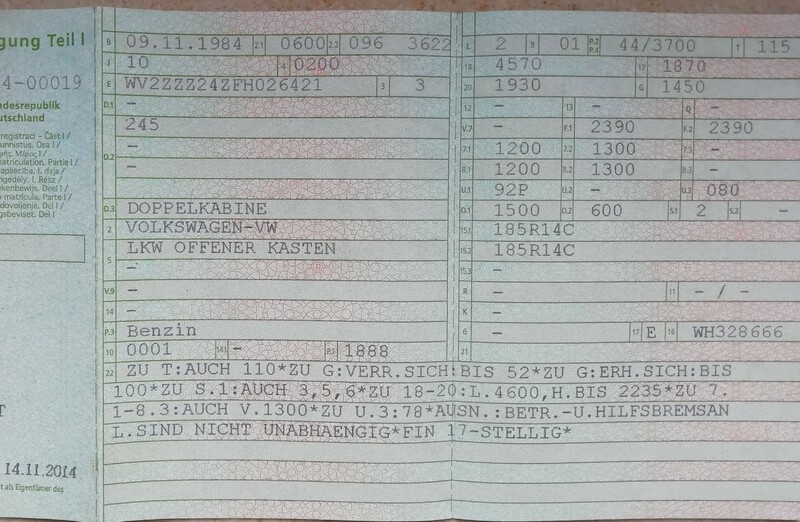 gung Teil I
4-00019
desrepublik
utschland
B 09.11.1984 2.1 0600 2.2 096 3622
J 10 4 0200
E WV2ZZZ24ZFH026421 3 3
D.1 –
245
D.2 –
–
D.3 DOPPELKABINE
2 VOLKSWAGEN-VW
5 LKW OFFENER KASTEN
–
V.9 –
14 –
P.3 Benzin
10 0001 14.1 – P.1 1888
L 2 9 01 P.2 P.4 44/3700 T 115
18 4570 19 1870
20 1930 G 1450
12 – 13 – Q –
V.7 – F.1 2390 F.2 2390
7.1 1200 7.2 1300 7.3 –
8.1 1200 8.2 1300 8.3 –
U.1 92P U.2 – U.3 080
O.1 1500 O.2 600 S.1 2 S.2 –
15.1 185R14C
15.2 185R14C
15.3 –
R – 11 – / –
K –
6 – 17 E 16 WH328666
21
22 ZU T:AUCH 110*ZU G:VERR.SICH:BIS 52*ZU G:ERH.SICH:BIS
100*ZU S.1:AUCH 3,5,6*ZU 18-20:L.4600,H.BIS 2235*ZU 7.
1-8.3:AUCH V.1300*ZU U.3:78*AUSN.:BETR.-U.HILFSBREMSAN
L.SIND NICHT UNABHAENGIG*FIN 17-STELLIG*
T
14.11.2014
t als Eigentümer des